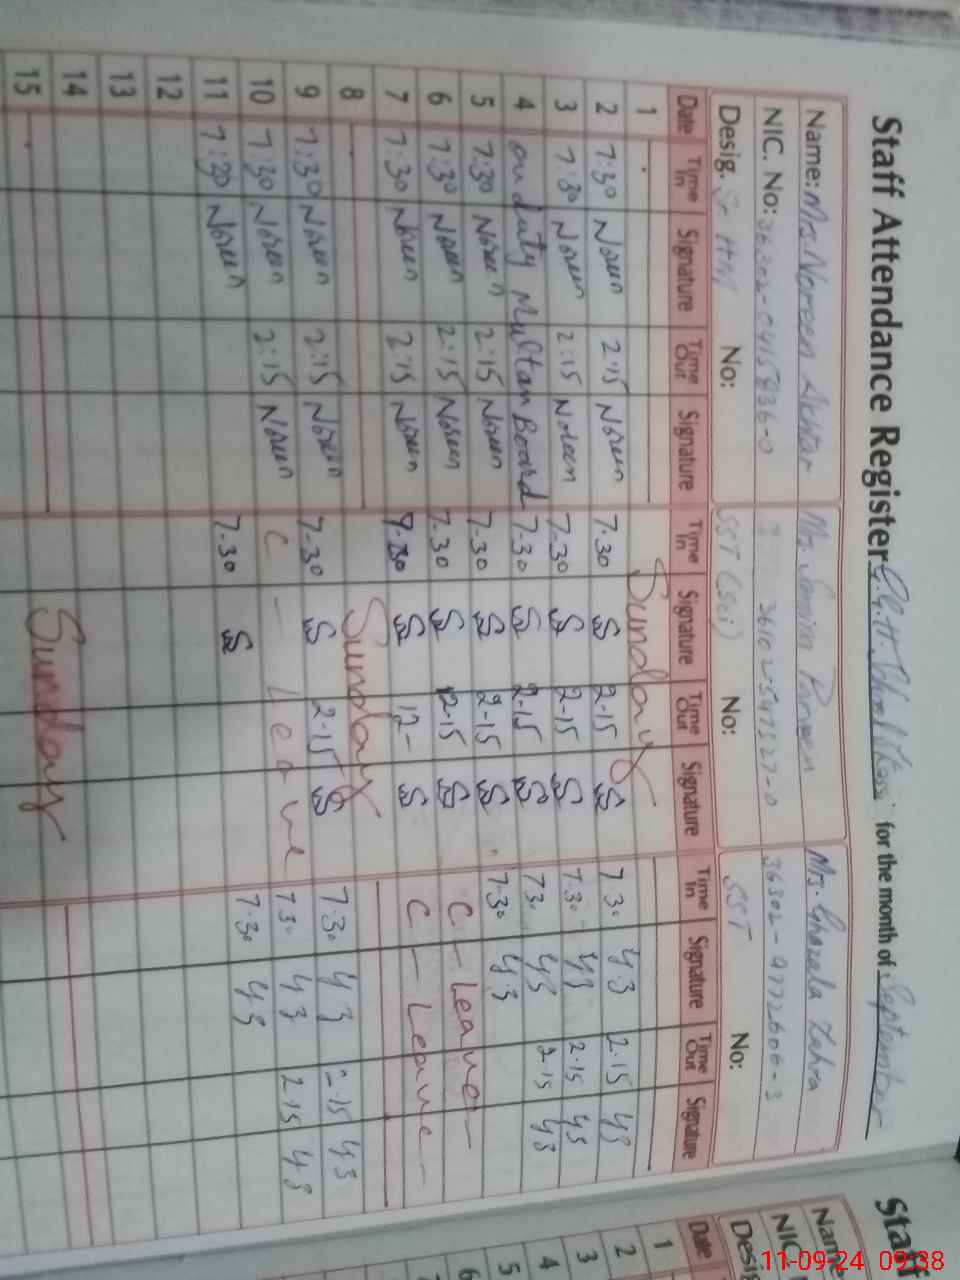 Staff Attendance Register G.G.H. for the month of September
Name: Mrs. Noreen Akhtar Mrs. Parveen Mrs. Ghazala Zahra
NIC. No: 36302-0415836-0 36102-5471527-0 36302-9772606-3
Desig. Sr. HM No: SST (Sci) No: SST No:
Date Time In Signature Time Out Signature Time In Signature Time Out Signature Time In Signature Time Out Signature
1 Sunday
2 7:30 Noreen 2:15 Noreen 7.30 2-15 7 3. 2.15
3 7:30 Noreen 2:15 Noreen 7-30 2-15 7.30 2.15
4 on duty Multan Board 7-30 2-15 7 3. 2-15
5 7:30 Noreen 2:15 Noreen 7-30 2-15 7-30
6 7:30 Noreen 2:15 Noreen 7-30 2-15 C - Leave -
7 7:30 Noreen 2:15 Noreen 7-30 12- C - Leave -
8 Sunday
9 7:30 Noreen 2:15 Noreen 7-30 2-15 7.30 2-15
10 7:30 Noreen 2:15 Noreen C - Leave 7 3. 2-15
11 7:30 Noreen 7-30 7.30
12
13
14
15 Sunday
Staff
Name
NIC.
Desig
Date
1
2
3
4
5
6
11-09-24 09:38